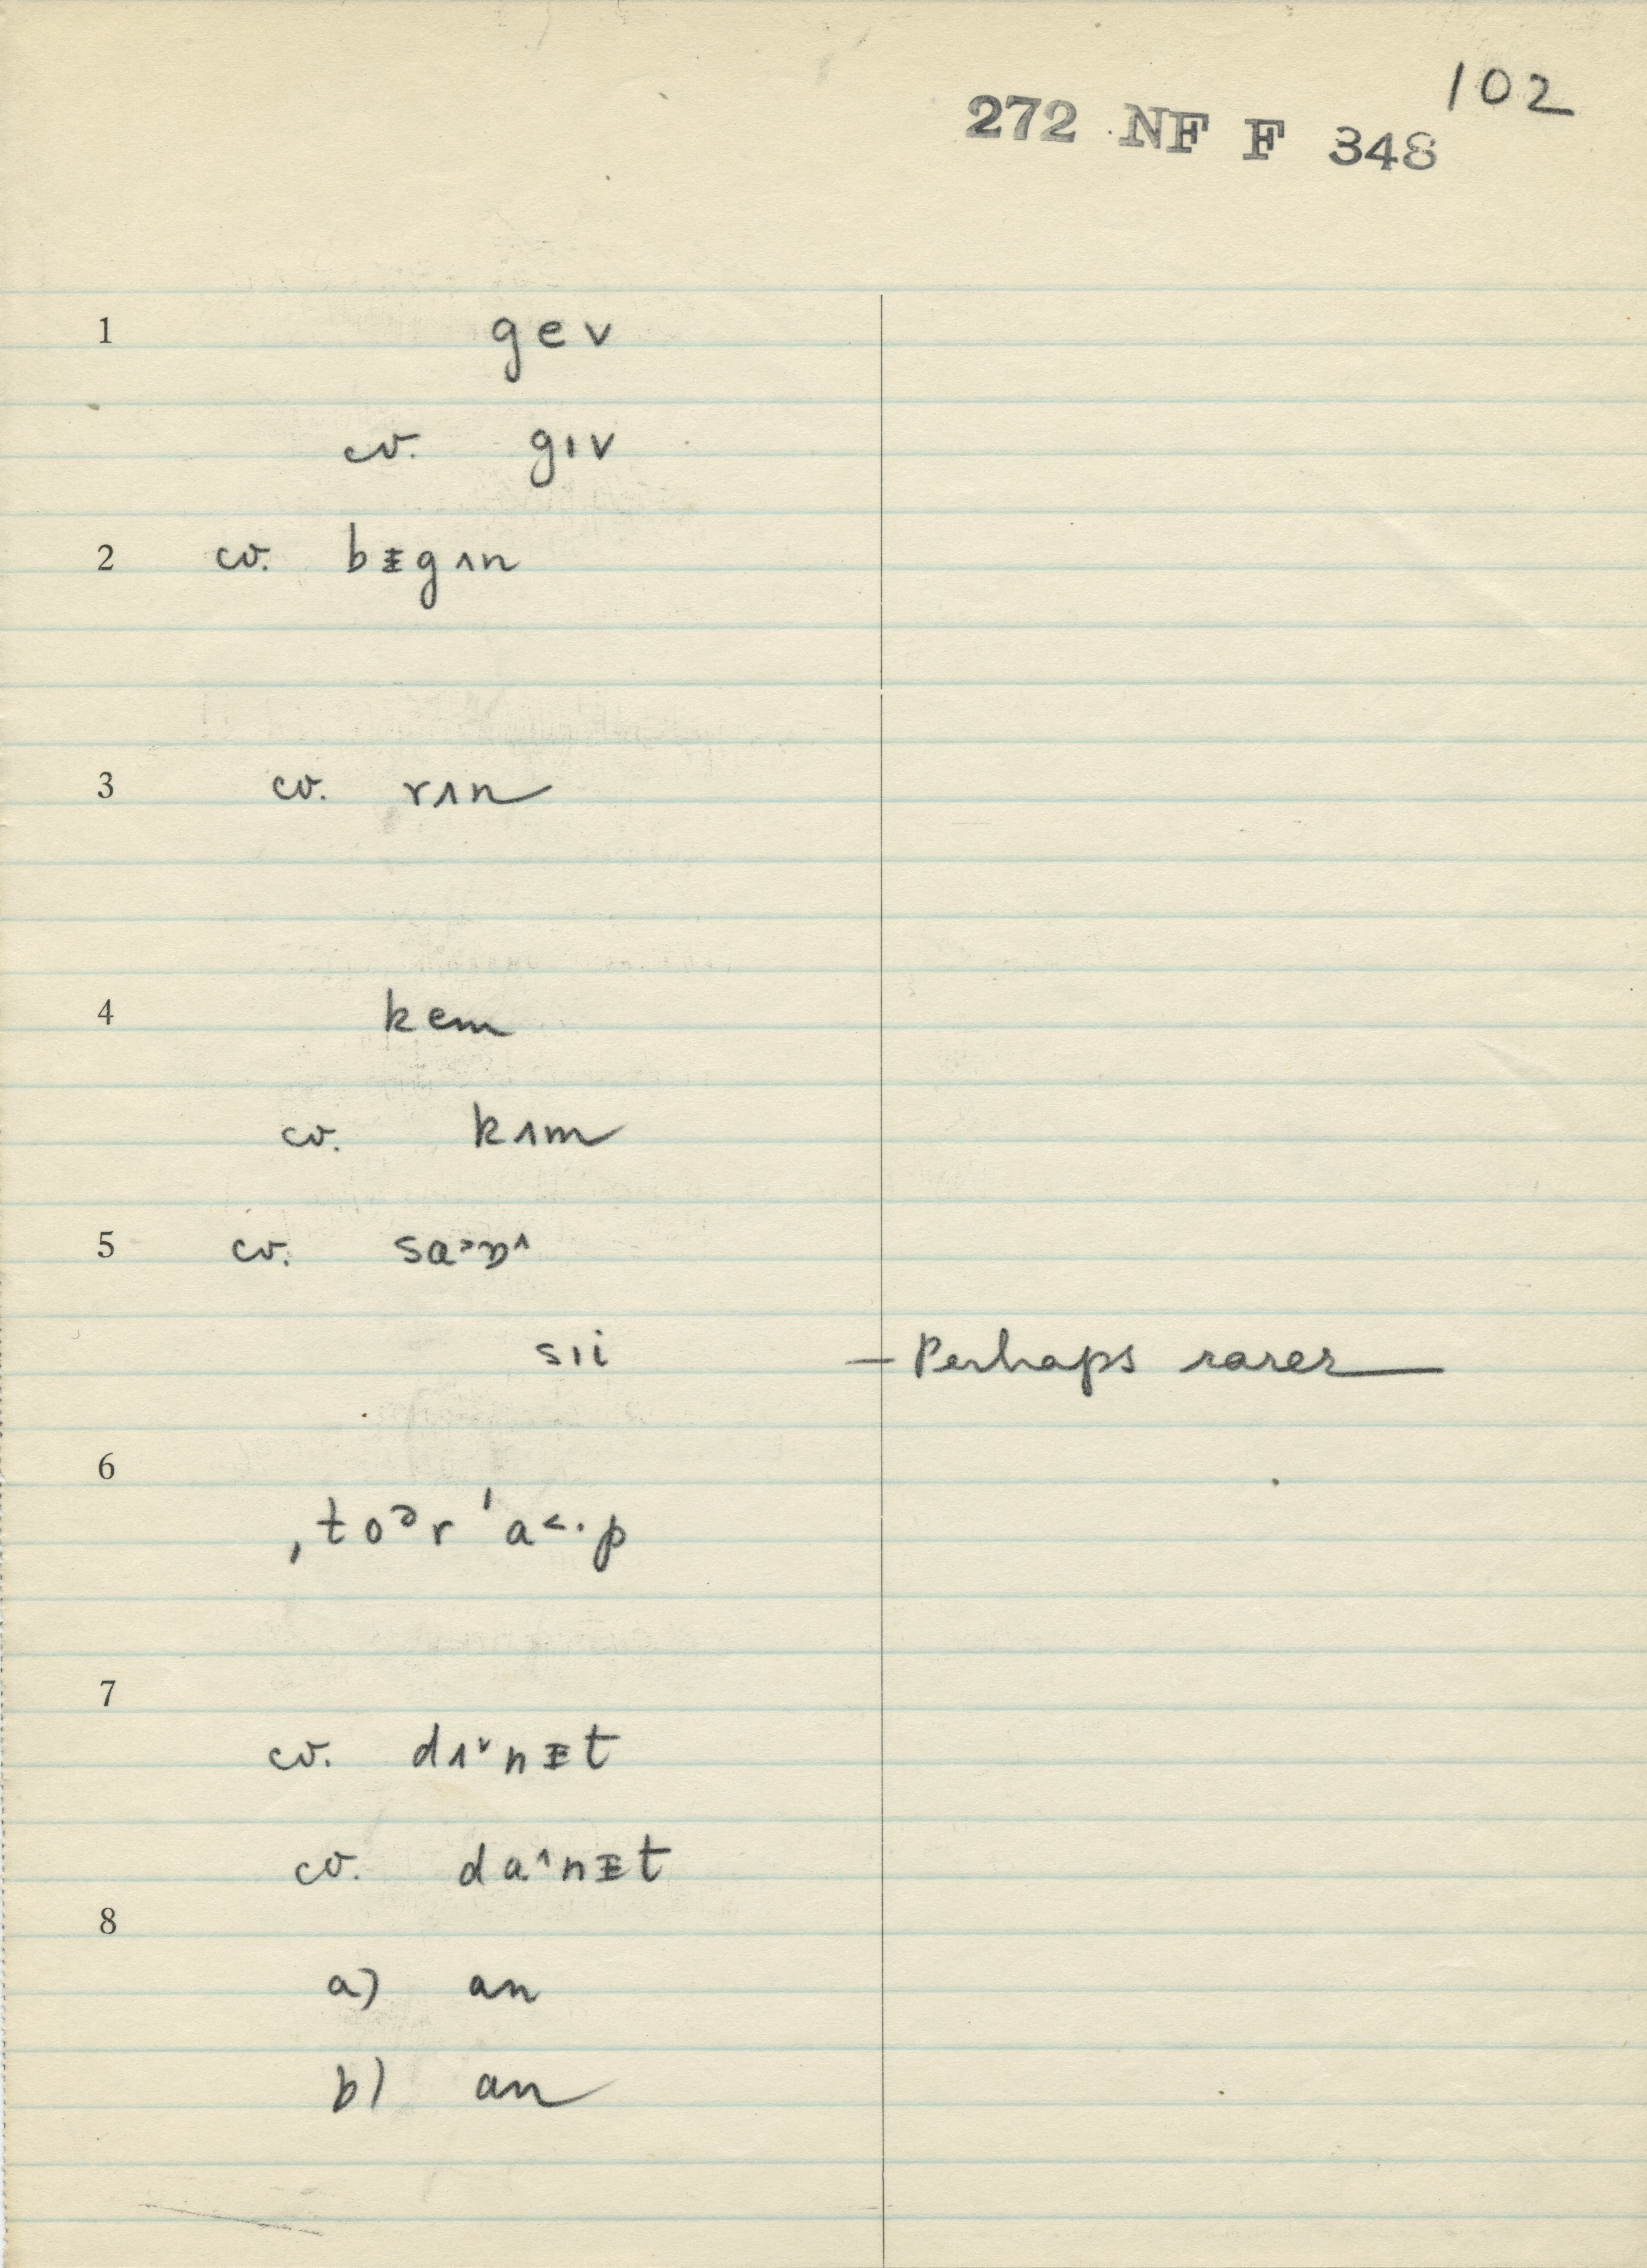 102
272 NF F 348
1 gev
cv. gɪv
2 cv. bᵻgʌn
3 cv. rʌn
4 kem
cv. kʌm
5 cv.
sɪi — Perhaps rarer
6 ˌtoᵊr ˈa˂·p
7 cv. dʌ˅nᵻt
cv. da˄nᵻt
8
a) an
b) an